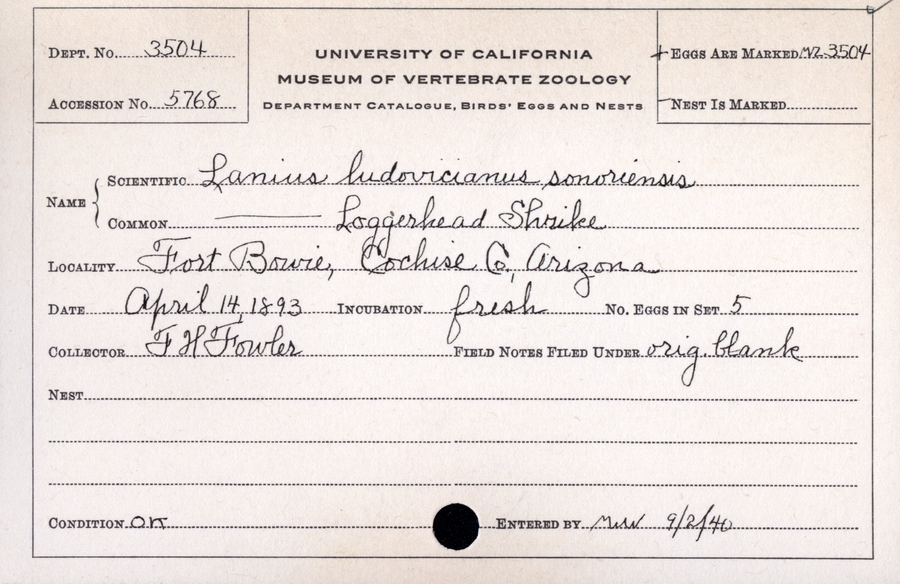 DEPT. NO. 3504
ACCESSION NO. 5768
UNIVERSITY OF CALIFORNIA
MUSEUM OF VERTEBRATE ZOOLOGY
DEPARTMENT CATALOGUE, BIRDS' EGGS AND NESTS
+ EGGS ARE MARKED MVZ 3504
– NEST IS MARKED
NAME
SCIENTIFIC Lanius ludovicianus sonoriensis
COMMON —— Loggerhead Shrike
LOCALITY Fort Bowie, Cochise Co., Arizona
DATE April 14, 1893 INCUBATION fresh NO. EGGS IN SET 5
COLLECTOR F H Fowler FIELD NOTES FILED UNDER orig. blank
NEST
CONDITION OK ENTERED BY 9/2/40